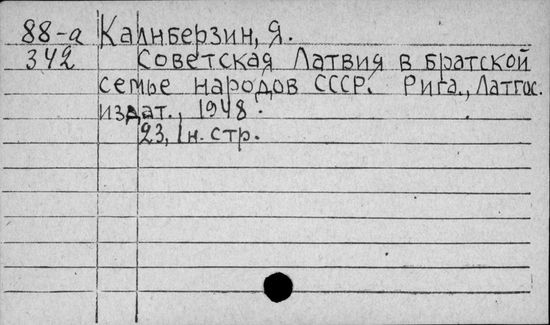 88-а Калнберзин, Я.
342 Советская Латвия в братской
семье народов СССР. Рига., Латгос.
издат., 1948.
23, 1н. стр.